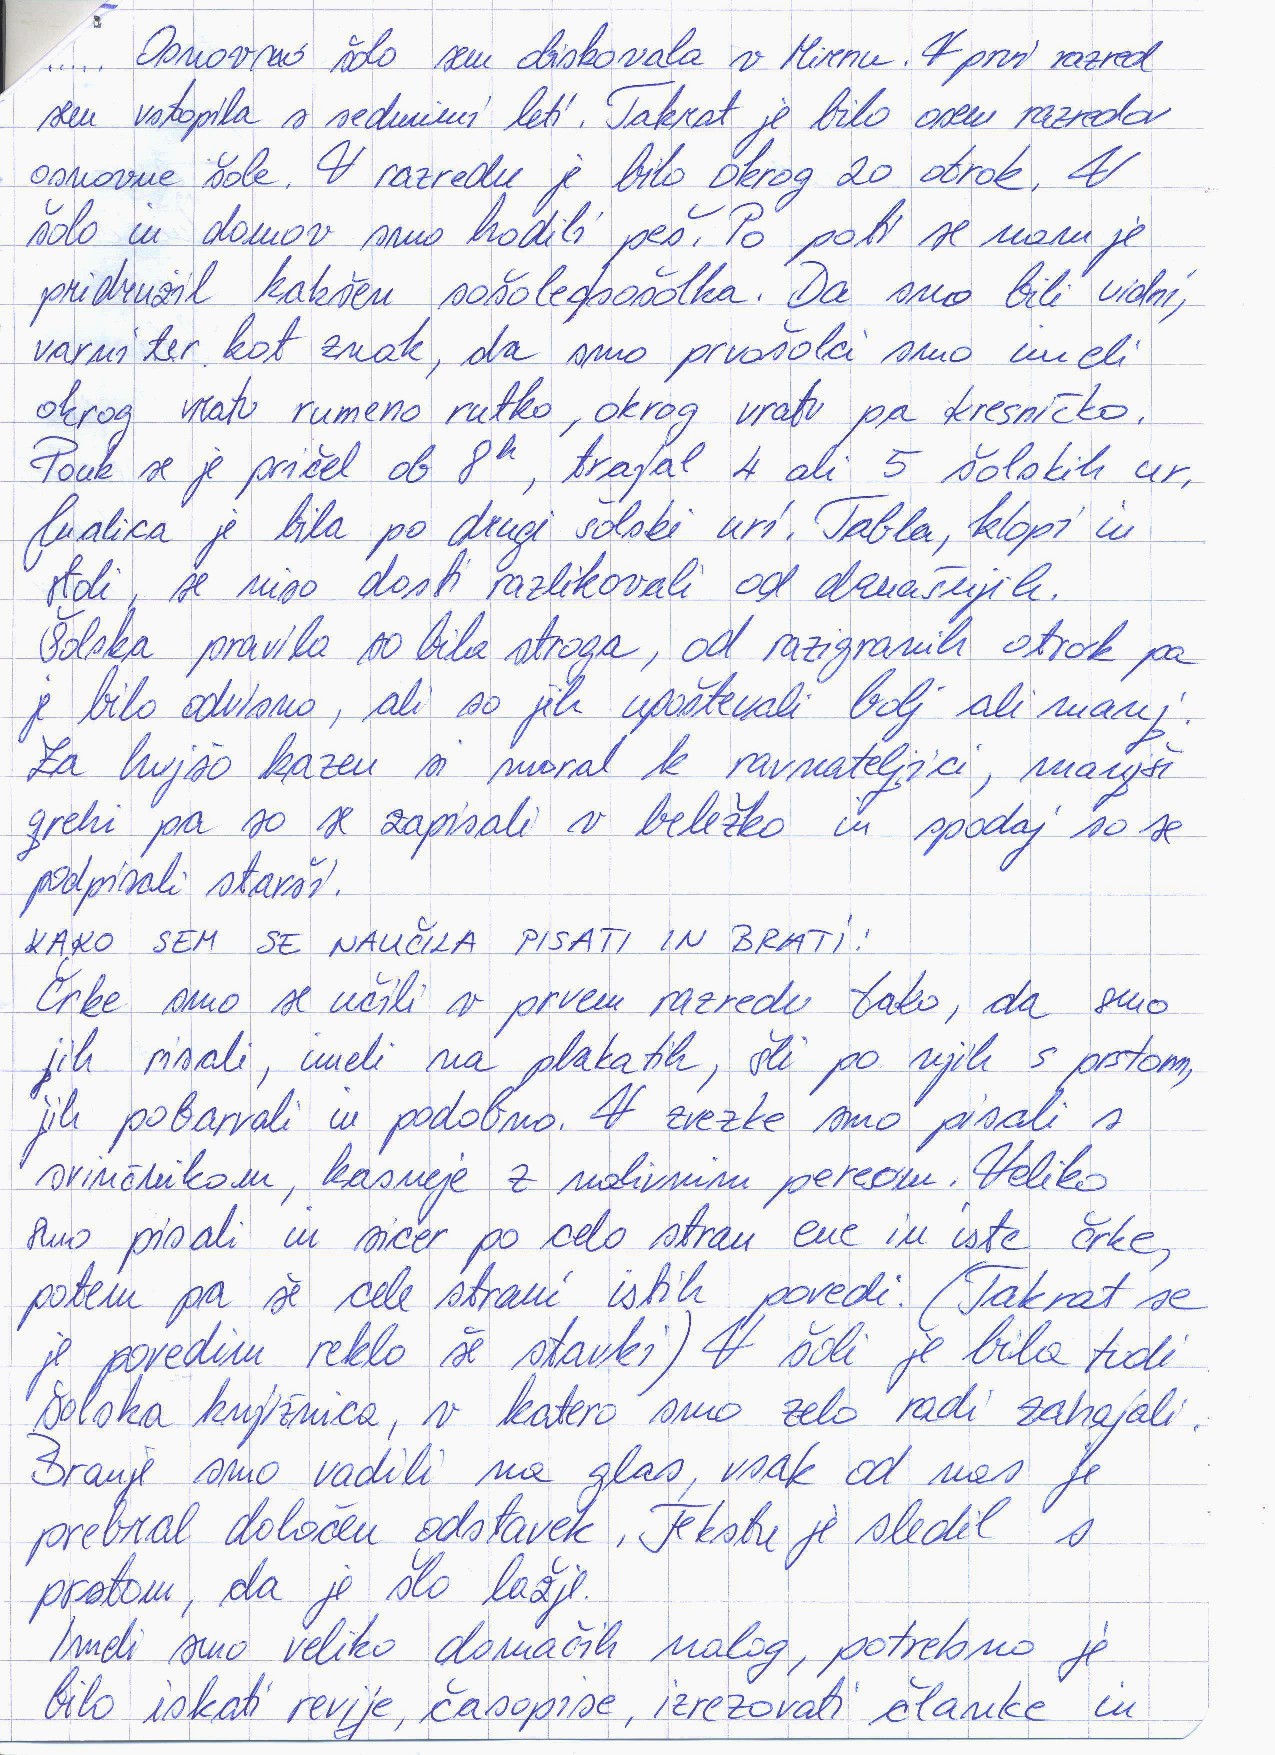 ..... Osnovno šolo sem obiskovala v Mirnu. V prvi razred
sem vstopila s sedmimi leti. Takrat je bilo osem razredov
osnovne šole. V razredu je bilo okrog 20 otrok. V
šolo in domov smo hodili peš. Po poti se nam je
pridružil kakšen sošolec, sošolka. Da smo bili vidni,
varni ter kot znak, da smo prvošolci smo imeli
okrog vratu rumeno rutko, okrog vratu pa kresničko.
Pouk se je pričel ob 8h, trajal 4 ali 5 šolskih ur,
malica je bila po drugi šolski uri. Tabla, klopi in
stoli, se niso dosti razlikovali od današnjih.
Šolska pravila so bila stroga, od razigranih otrok pa
je bilo odvisno, ali so jih upoštevali bolj ali manj.
Za hujšo kazen si moral k ravnateljici, manjši
grehi pa so se zapisali v beležko in spodaj so se
podpisali starši.
KAKO SEM SE NAUČILA PISATI IN BRATI:
Črke smo se učili v prvem razredu tako, da smo
jih risali, imeli na plakatih, šli po njih s prstom,
jih pobarvali in podobno. V zvezke smo pisali s
svinčnikom, kasneje z nalivnim peresom. Veliko
smo pisali in sicer po celo stran ene in iste črke,
potem pa še cele strani istih povedi. (Takrat se
je povedim reklo še stavki) V šoli je bila tudi
šolska knjižnica, v katero smo zelo radi zahajali.
Branje smo vadili na glas, vsak od nas je
prebral določen odstavek. Tekstu je sledil s
prstom, da je šlo lažje.
Imeli smo veliko domačih nalog, potrebno je
bilo iskati revije, časopise, izrezovati članke in